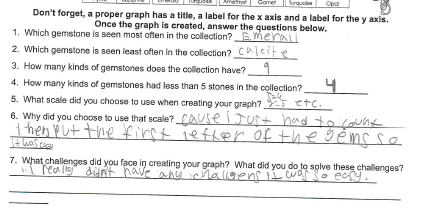 Amethyst Garnet Turquoise Opal
Don't forget, a proper graph has a title, a label for the x axis and a label for the y axis.
Once the graph is created, answer the questions below.
1. Which gemstone is seen most often in the collection? Emerall
2. Which gemstone is seen least often in the collection? calcite
3. How many kinds of gemstones does the collection have? 9
4. How many kinds of gemstones had less than 5 stones in the collection? 4
5. What scale did you choose to use when creating your graph? etc.
6. Why did you choose to use that scale? cause i Just had to count
then put the first letter of the gems so
it was easy
7. What challenges did you face in creating your graph? What did you do to solve these challenges?
i really didn't have any challigens it was so easy.